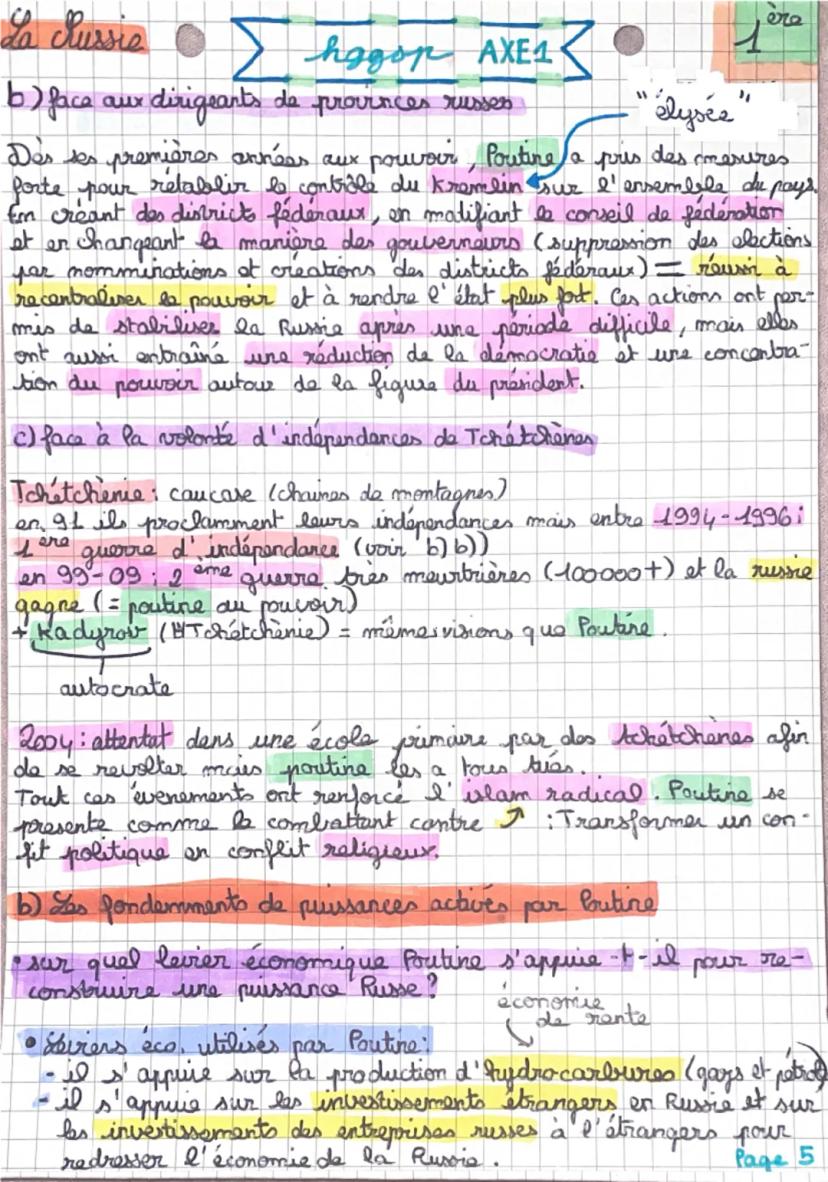 La Russie
hggsp AXE1
1ère
b) face aux dirigeants de provinces russes
"élysée"
Dès ses premières années aux pouvoir, Poutine a pris des mesures
forte pour rétablir le contrôle du Kremlin sur l'ensemble du pays.
En créant des districts fédéraux, en modifiant le conseil de fédération
et en changeant la manière des gouverneurs (suppression des elections
par nomminations et créations des districts fédéraux) = réussir à
recentraliser le pouvoir et à rendre l'état plus fort. Ces actions ont per-
mis de stabiliser la Russie après une période difficile, mais elles
ont aussi entraîné une réduction de la démocratie et une concentra-
tion du pouvoir autour de la figure du président.
c) face à la volonté d'indépendances de Tchétchènes
Tchétchènie : caucase (chaines de montagnes)
en 91 ils proclamment leurs indépendances mais entre 1994-1996 :
1ère guerre d'indépendance (voir b) b))
en 99-09 : 2ème guerre très meurtrières (100000+) et la russie
gagne (= poutine au pouvoir)
+ Kadyrov (Tchétchènie) = même visions que Poutine.
autocrate
2004 : attentat dans une école primaire par des tchétchènes afin
de se revolter mais poutine les a tous tués.
Tout ces évenements ont renforcé l'islam radical. Poutine se
presente comme le combattant contre ↗ : Transformer un con-
fit politique en conflit religieux.
b) Les fondemments de puissances activés par Poutine
• sur quel levier économique Poutine s'appuie-t-il pour re-
construire une puissance Russe ?
économie
de rente
• Leviers éco. utilisés par Poutine :
- il s'appuie sur la production d'hydrocarbures (gays et pétrol)
- il s'appuie sur les investissements étrangers en Russie et sur
les investissements des entreprises russes à l'étrangers pour
redresser l'économie de la Russie.
Page 5